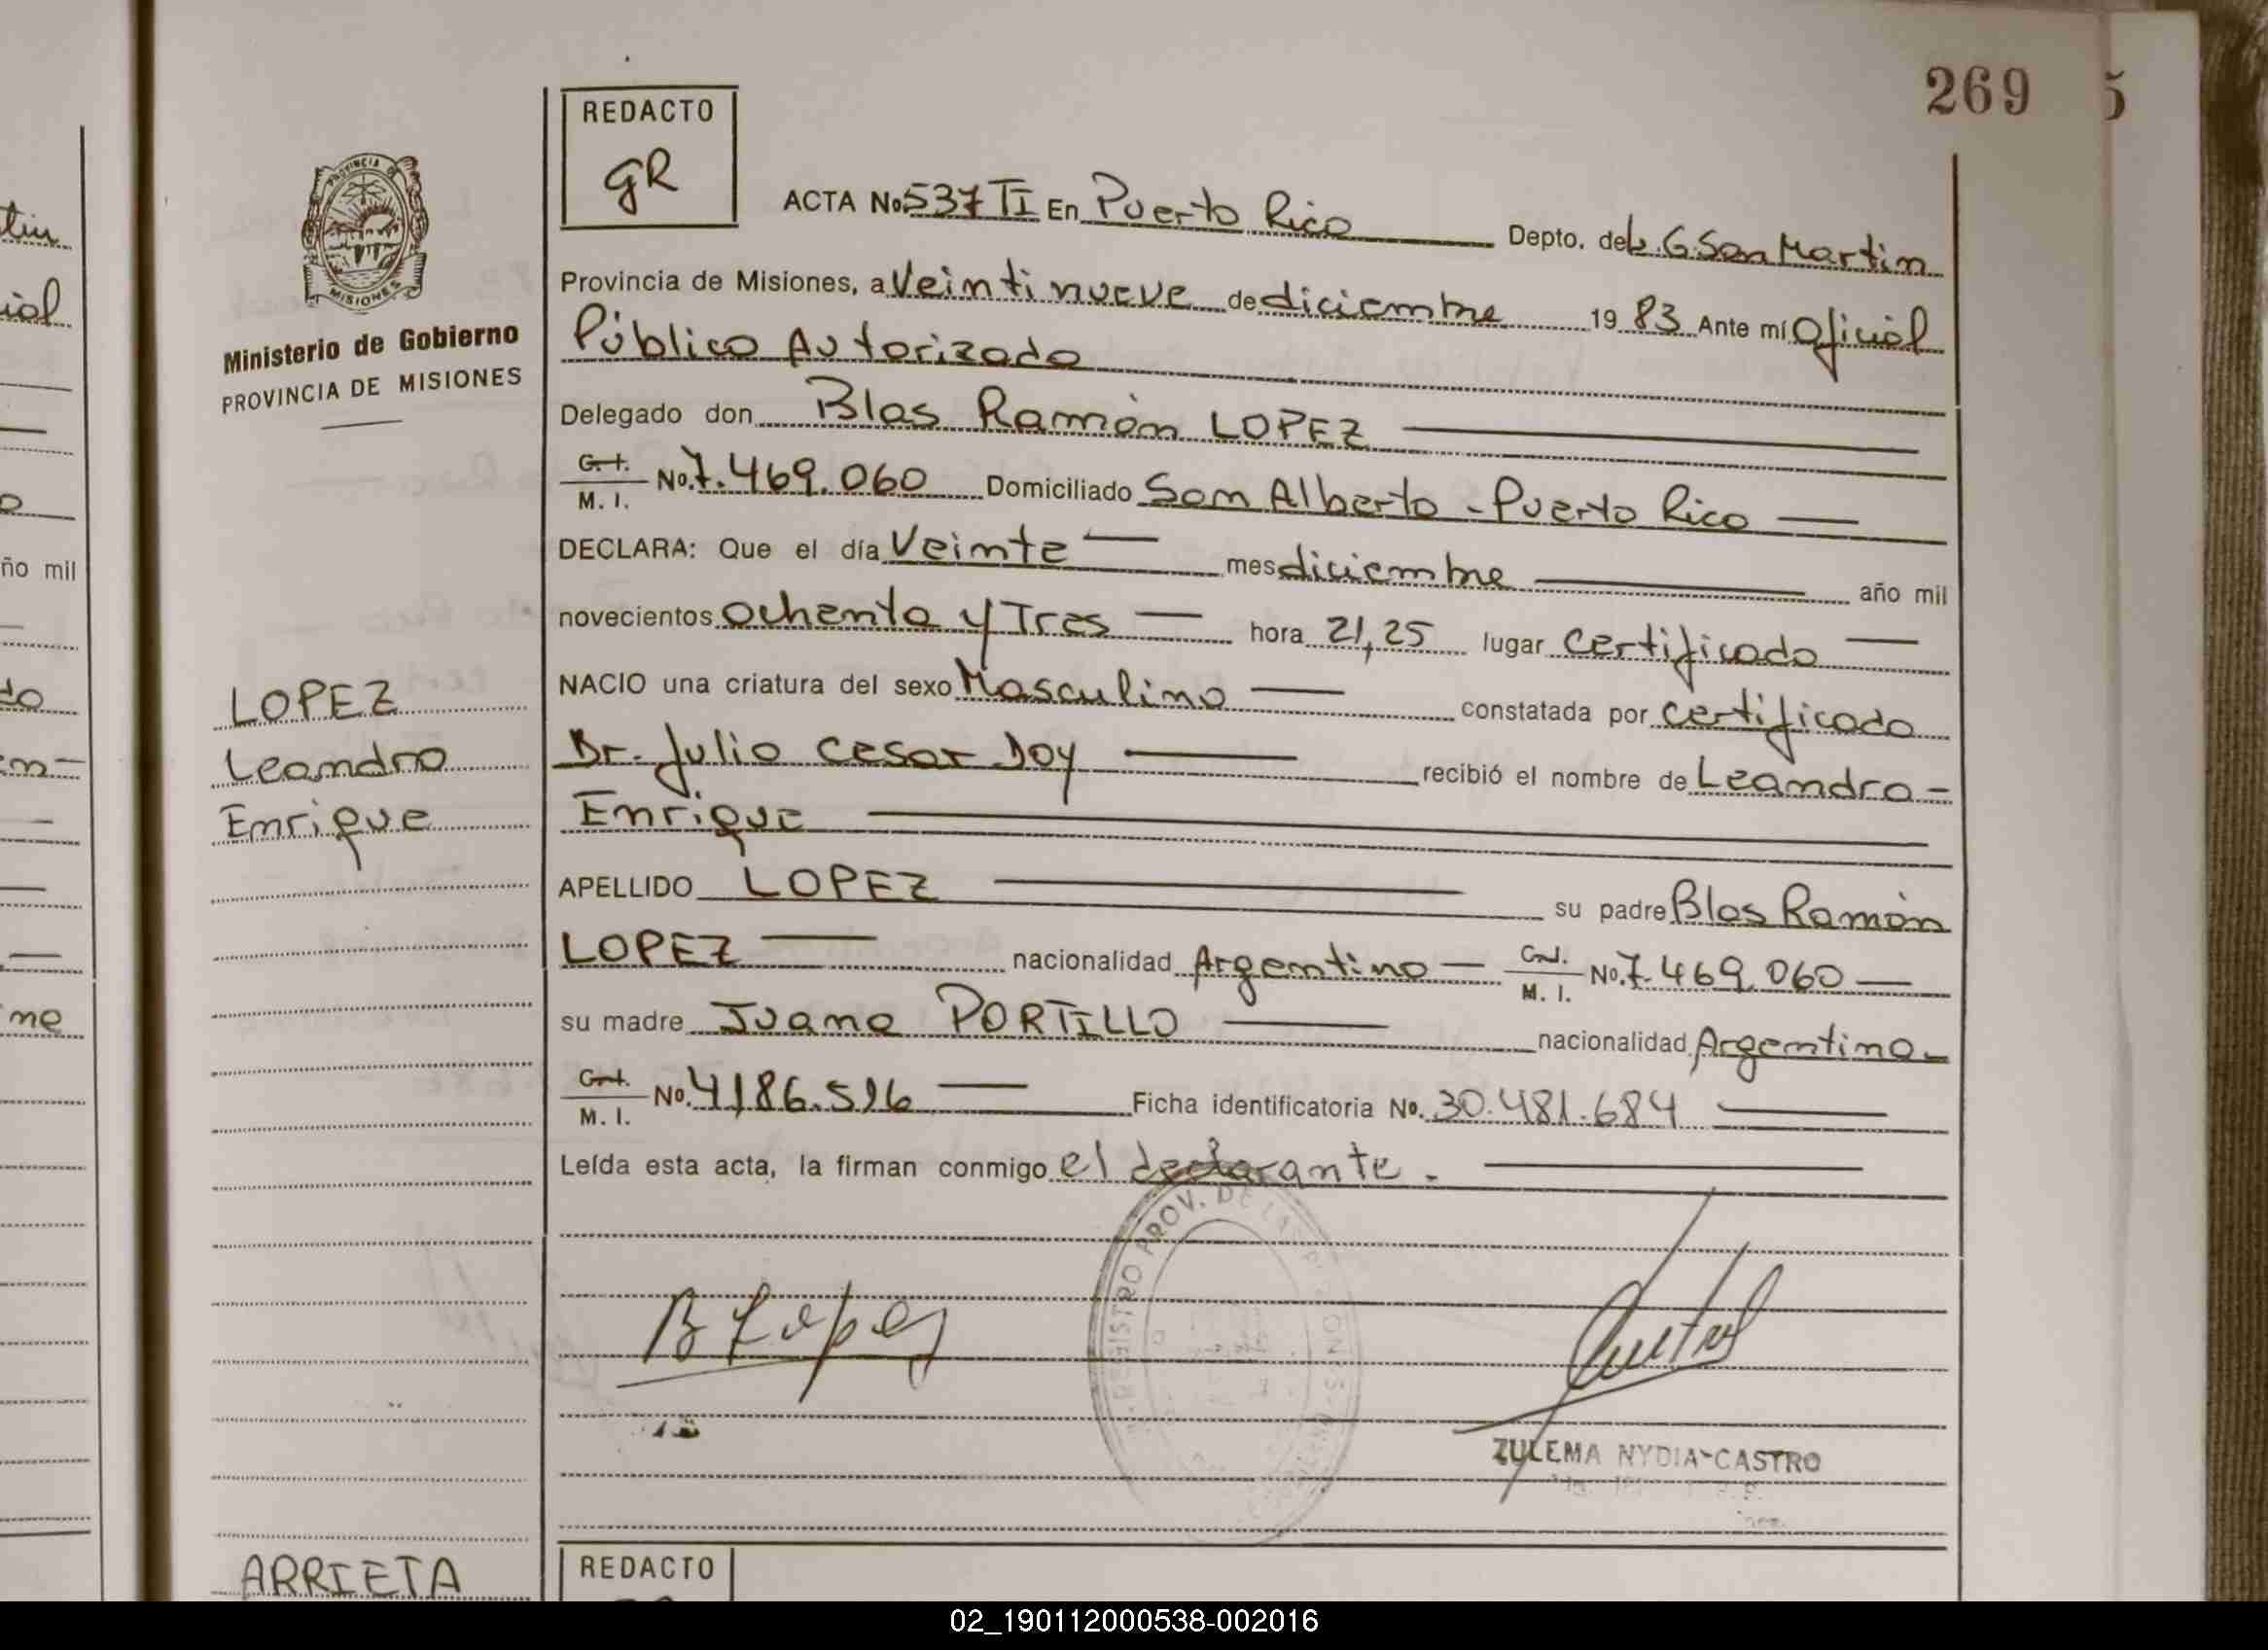 269
5
REDACTO
gR
ACTA No. 537 TI En Puerto Rico Depto. de L. G. San Martin
Provincia de Misiones, a Veintinueve de diciembre 19 83 Ante mí Oficial
Público Autorizado
Delegado don Blas Ramón LOPEZ
M. I. No. 7.469.060 Domiciliado San Alberto - Puerto Rico
DECLARA: Que el día Veinte mes diciembre año mil
novecientos ochenta y Tres hora 21,25 lugar certificado
NACIO una criatura del sexo Masculino constatada por certificado
Dr. Julio Cesar Doy recibió el nombre de Leandro-
Enrique
APELLIDO LOPEZ su padre Blas Ramón
LOPEZ nacionalidad Argentino M. I. No. 7.469.060
su madre Juana PORTILLO nacionalidad Argentina
M. I. No. 4186.516 Ficha identificatoria No. 30.481.684
Leída esta acta, la firman conmigo el declarante.
B Lopez
REGISTRO PROV. DE LAS PERSONAS
ZULEMA NYDIA CASTRO
PROVINCIA DE
MISIONES
Ministerio de Gobierno
PROVINCIA DE MISIONES
LOPEZ
Leandro
Enrique
ARRIETA
REDACTO
tin
ial
ño mil
do
en-
ne
02_190112000538-002016